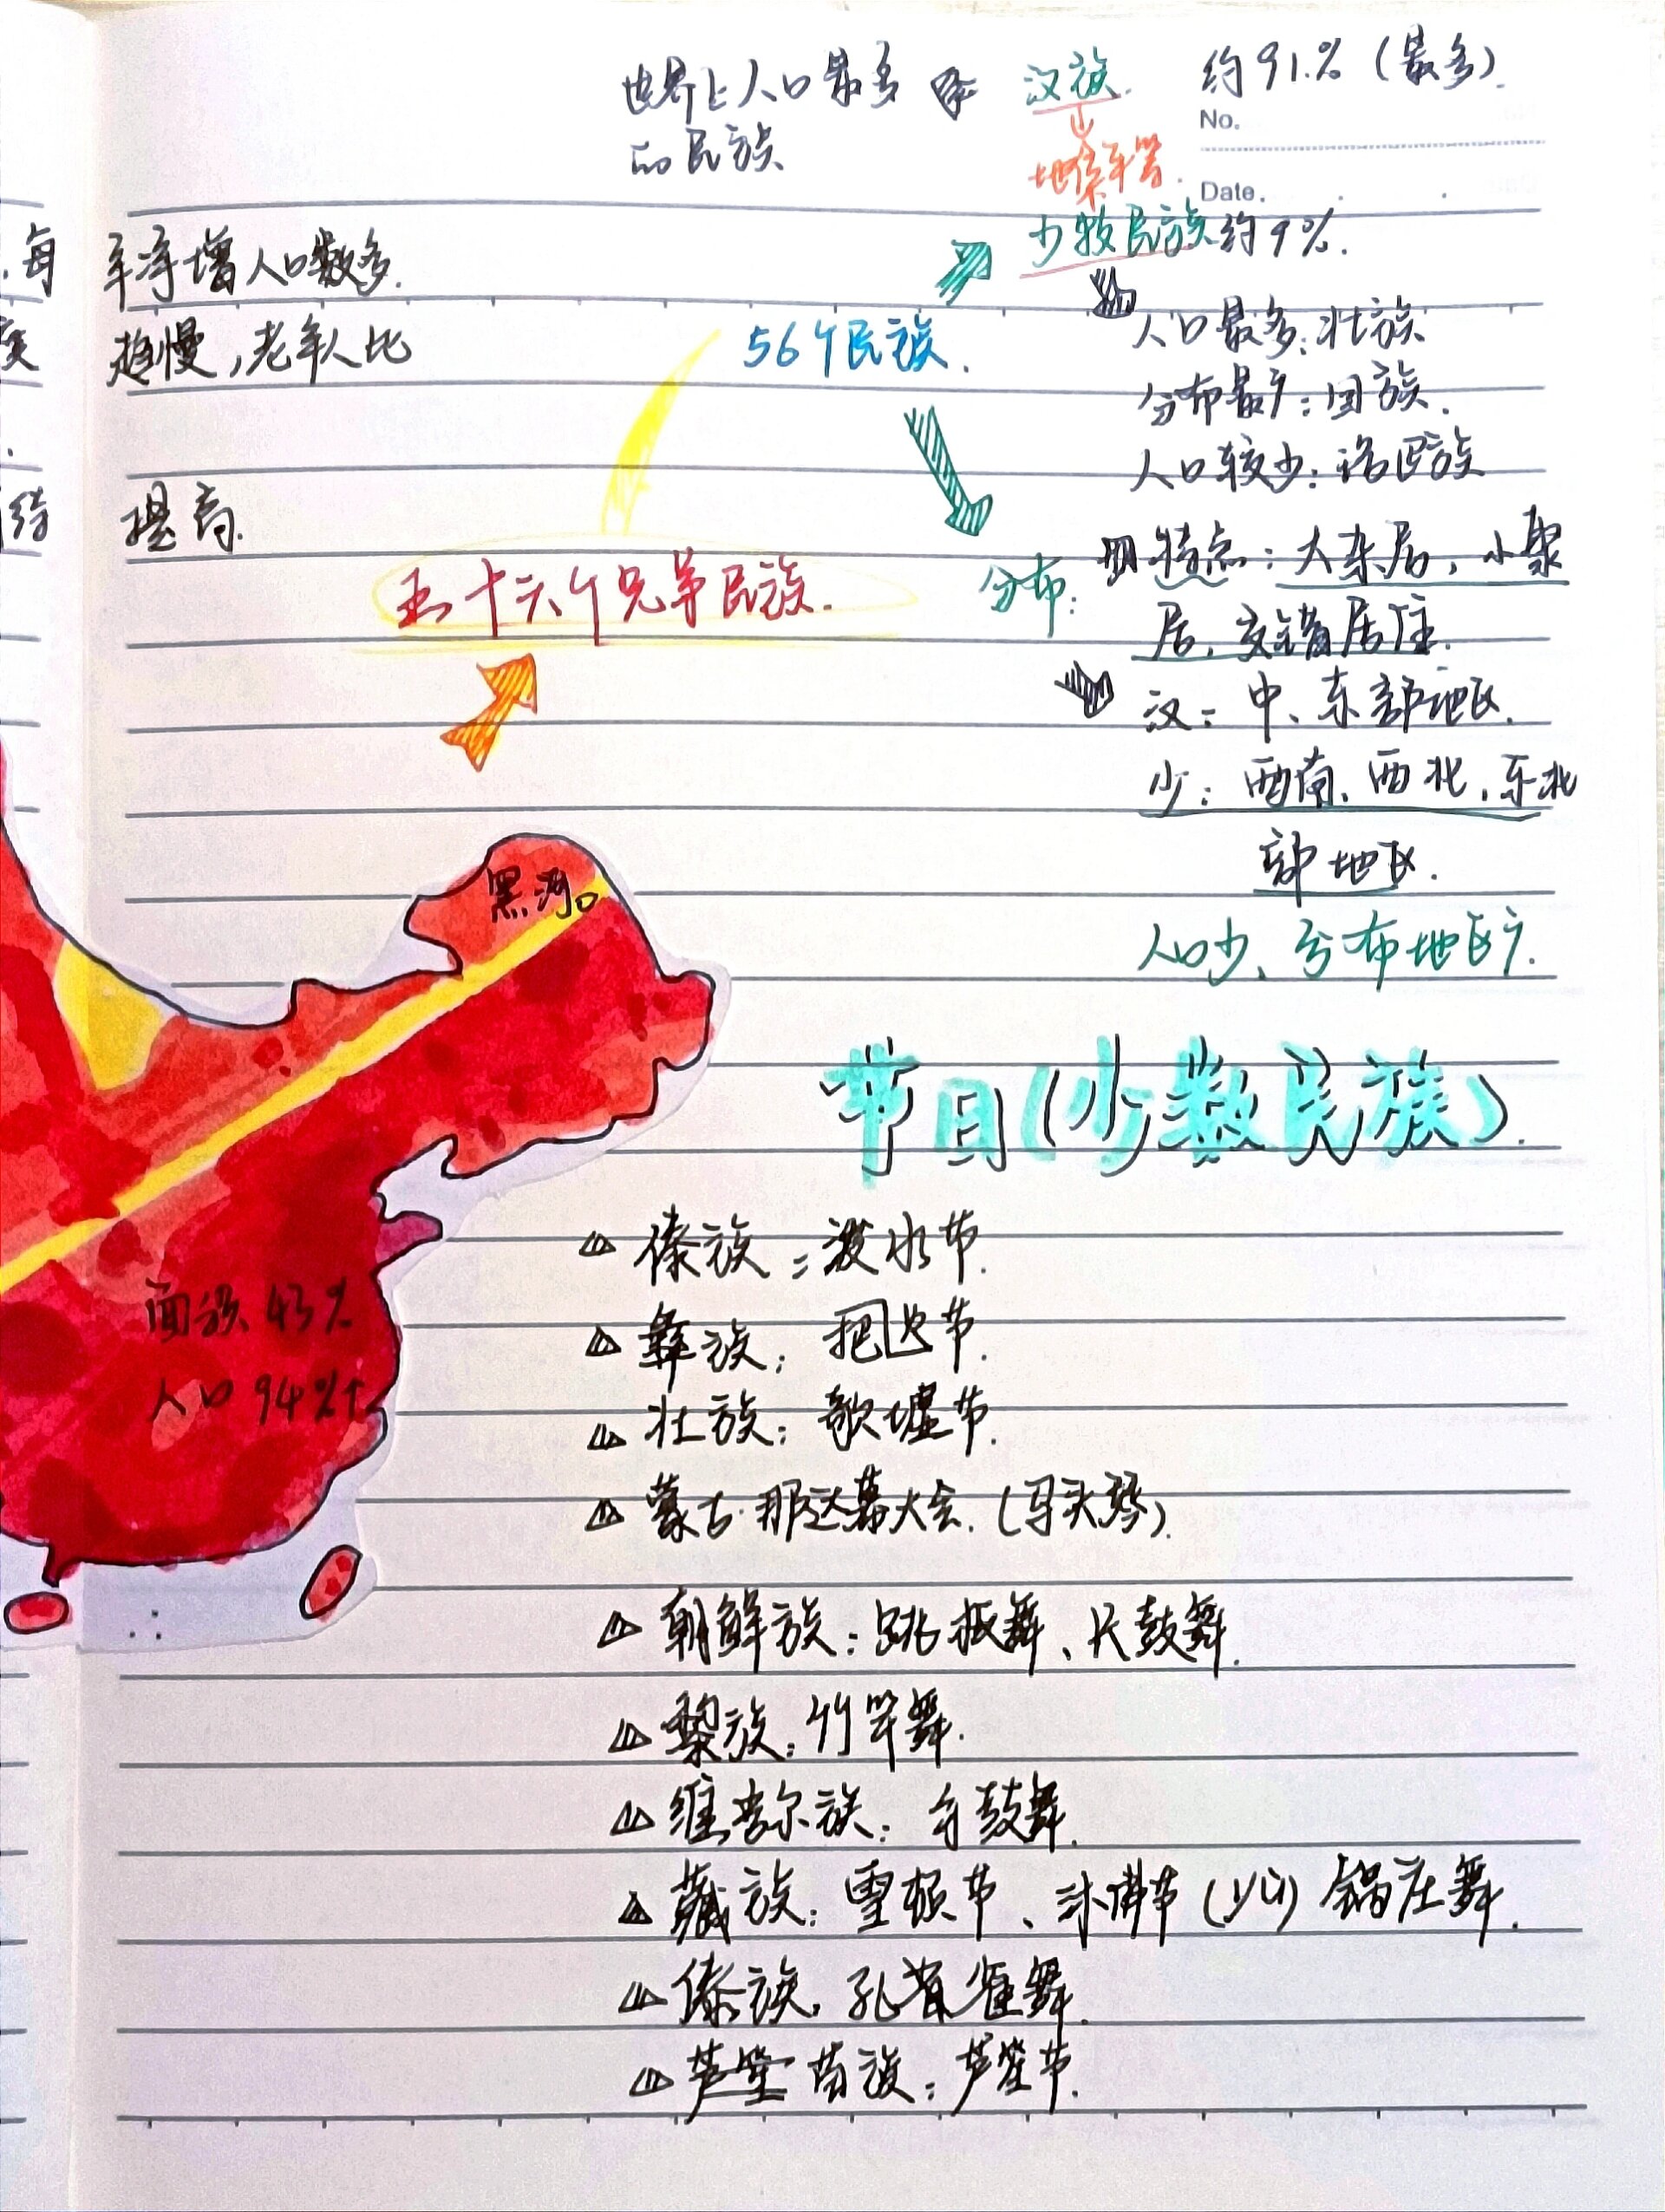 世界上人口最多 汉族. 约91.% (最多).
的民族
No.
Date.
少数民族约9%.
每 年净增人口数多.
趋慢,老年人比
56个民族.
人口最多:壮族
分布最广:回族.
人口较少:珞巴族
待 提高.
五十六个兄弟民族.
分布: 特点:大杂居,小聚
居,交错居住.
汉:中、东部地区.
少:西南、西北,东北
部地区.
人口少、分布地区广.
黑河
节日(少数民族).
傣族:泼水节.
面积43%
彝族:把火节.
人口94%↑
壮族:歌墟节.
蒙古·那达慕大会.(马头琴).
朝鲜族:跳板舞、长鼓舞.
黎族:竹竿舞.
维吾尔族:手鼓舞.
藏族:雪顿节、沐佛节 锅庄舞.
傣族,孔雀舞.
芦笙 苗族:芦笙节.